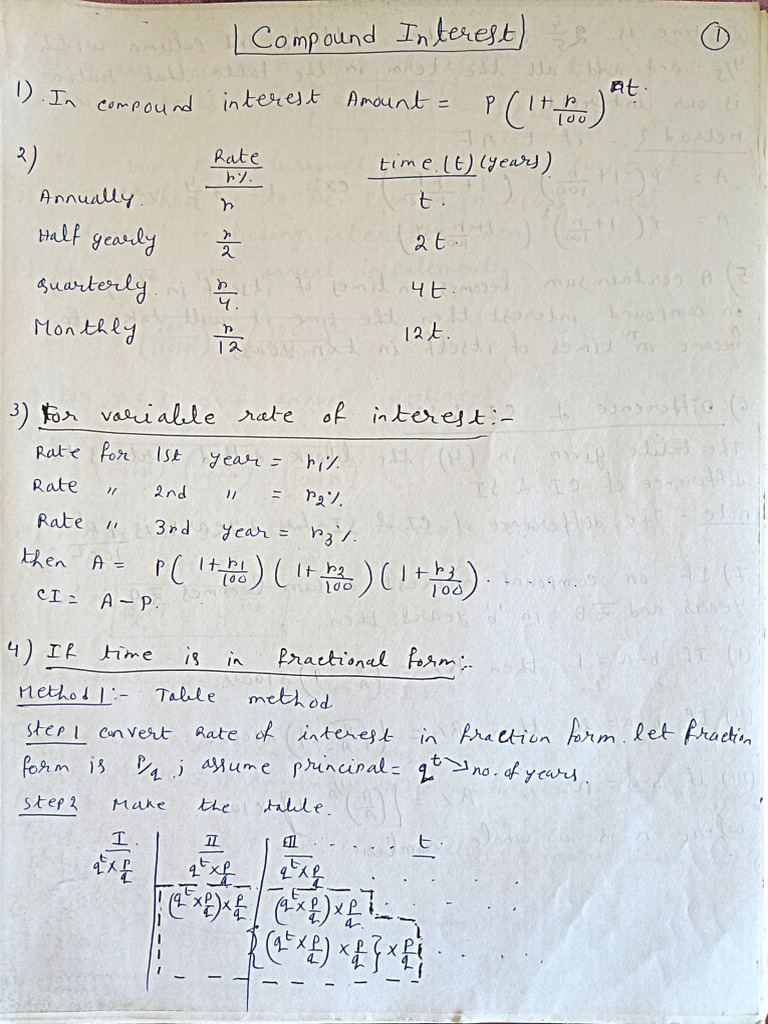 Compound Interest
①
1). In compound interest Amount = P(1+r/100)^nt.
2)
Rate r%. time (t) (years)
Annually. r t.
Half yearly r/2 2t.
Quarterly r/4. 4t.
Monthly r/12 12t.
3) For variable rate of interest:-
Rate for 1st year = r1%.
Rate " 2nd " = r2%.
Rate " 3rd year = r3%.
then A = P(1+r1/100)(1+r2/100)(1+r3/100).
CI = A-P.
4) If time is in fractional form:-
Method 1:- Table method
Step 1 convert Rate of interest in fraction form. let fraction
form is P/q ; assume principal = q^t → no. of years.
Step 2 Make the table.
I. II III . . . . . . t.
q^t×p/q q^t×p/q q^t×p/q . .
(q^t×p/q)×p/q (q^t×p/q)×p/q. . . .
{(q^t×p/q)×p/q}×p/q . . . .